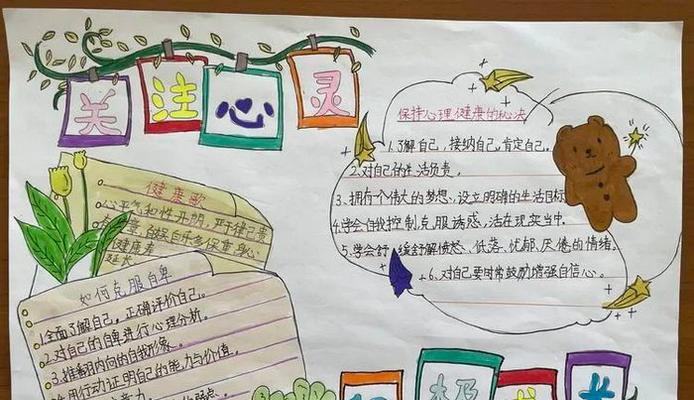 关注心灵
保持心理健康的秘决
1.了解自己,接纳自己,肯定自己。
2.对自己的生活负责。
3、拥有个伟大的梦想、设立明确的生活目标
4.学会自我控制克服诱惑,活在现实当中.
5.学会舒缓舒解愤怒、低落、忧郁、厌倦的情绪。
6.对自己要时常鼓励增强自信心。
健康歌
心平气和性开朗,严于律己责
保重身心
健康者
延长
如何克服自卑
1.全面了解自己,正确评价自己。
2.对自己的自卑进行心理分析。
3.推翻内向的自我形象。
用行动证明自己的能力与价值。
积极